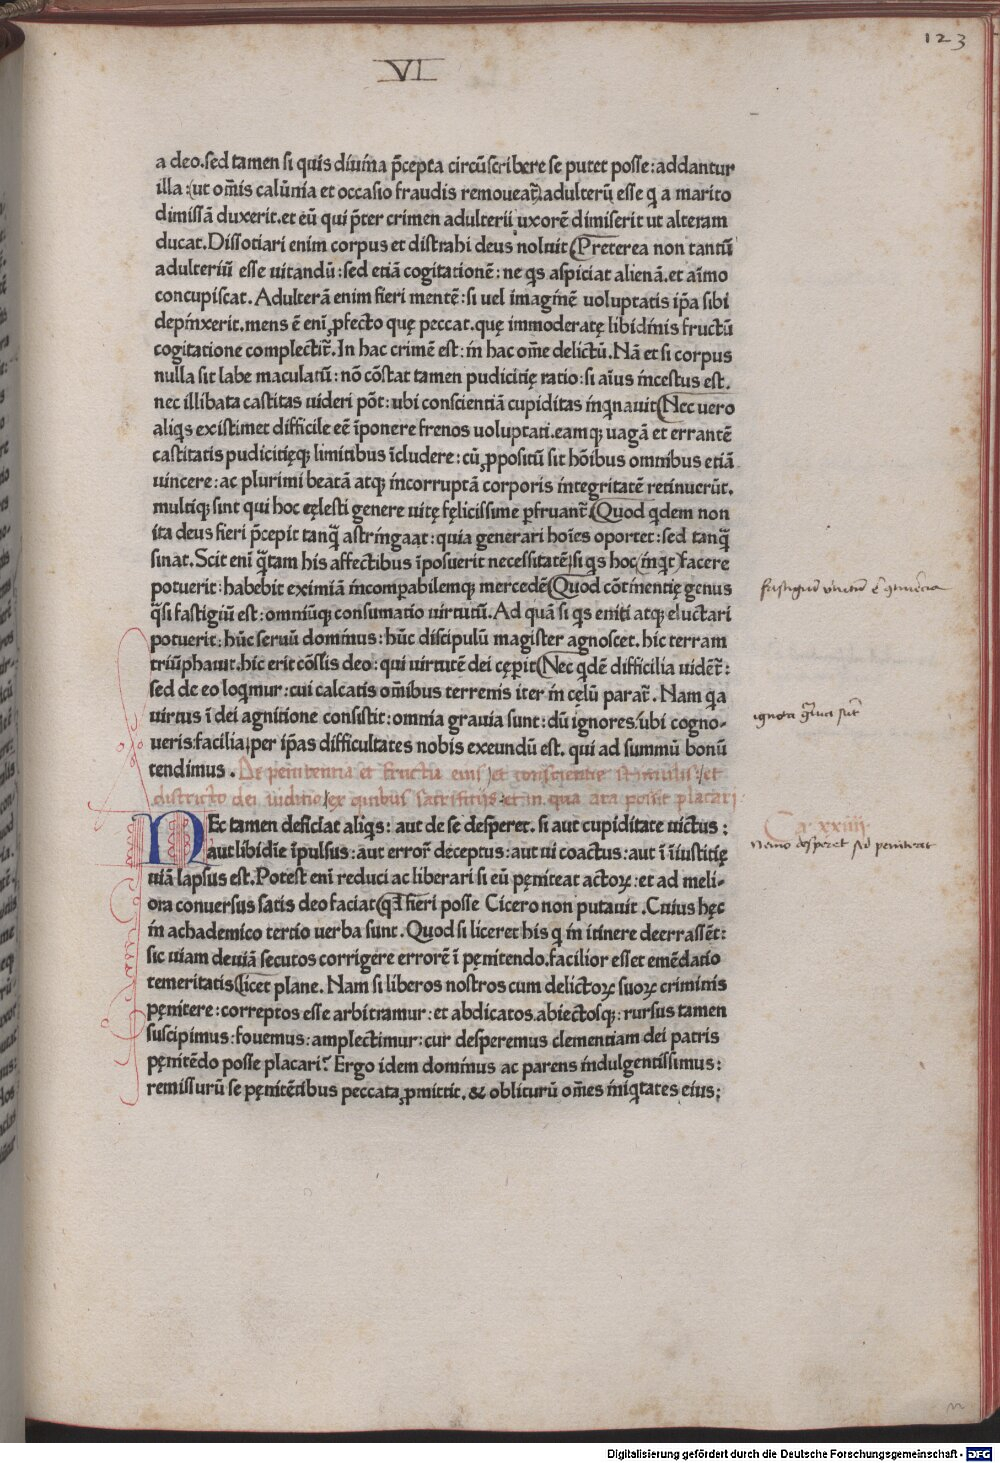 123
VI
a deo.sed tamen si quis diuina p̄cepta circūscribere se putet posse:addantur
illa:ut om̄is calūnia et occasio fraudis remoueat̄.adulterū esse q a marito
dimissā duxerit.et eū qui p̄ter crimen adulterii uxorē dimiserit ut alteram
ducat.Dissotiari enim corpus et distrahi deus noluit(Preterea non tantū
adulteriū esse uitandū:sed etiā cogitationē:ne qs aspiciat alienā.et aīmo
concupiscat.Adulterā enim fieri mentē:si uel imaginē uoluptatis ip̄a sibi
depinxerit.mens ē enī ꝓfecto quę peccat.quę immoderatę libidinis fructū
cogitatione complectit̄.In hac crimē est:in hac om̄e delictū.Nā et si corpus
nulla sit labe maculatū:nō cōstat tamen pudicitię ratio:si aīus incestus est.
nec illibata castitas uideri pōt:ubi conscientiā cupiditas inqnauit(Nec uero
aliqs existimet difficile eē īponere frenos uoluptati.eamqꝫ uagā et errantē
castitatis pudicitięqꝫ limitibus īcludere:cū ꝓpositū sit hōibus omnibus etiā
uincere:ac plurimi beatā atqꝫ incorruptā corporis integritatē retinuerūt.
multiqꝫ sint qui hoc cęlesti genere uitę fęlicissime ꝑfruant̄.(Quod qdem non
ita deus fieri p̄cepit tanq̄ astringaat:quia generari hoīes oportet:sed tanq̄
sinat.Scit enī q̄tam his affectibus īposuerit necessitatē.si qs hoc (inqt) facere
potuerit:habebit eximiā incomꝑabilemqꝫ mercedē(Quod cōtinentię genus
q̄si fastigiū est:omniūqꝫ consumatio uirtutū.Ad quā si qs eniti atqꝫ eluctari
potuerit:hūc seruū dominus:hūc discipulū magister agnoscet.hic terram
triūphauit.hic erit cōslis deo:qui uirtutē dei cępit(Nec qdē difficilia uident̄:
sed de eo loqmur:cui calcatis om̄ibus terrenis iter in cęlū parat̄.Nam qa
uirtus ī dei agnitione consistit:omnia grauia sunt:dū ignores:ubi cogno-
ueris:facilia.per ip̄as difficultates nobis exeundū est.qui ad summū bonū
tendimus.De penitentia et fructu eius/et conscientie stimulis:/et
districto dei iuditio/ex quibus sacrifitijs et in qua ara possit placari.
NEc tamen deficiat aliqs:aut de se desperet.si aut cupiditate uictus:
aut libidīe īpulsus:aut error̄ deceptus:aut ui coactus:aut ī īiustitię
uiā lapsus est.Potest enī reduci ac liberari si eū pęniteat actoꝝ:et ad meli-
ora conuersus satis deo faciat(qđ fieri posse Cicero non putauit.Cuius hęc
in achademico tertio uerba sunt.Quod si liceret his q in itinere deerrassēt:
sic uiam deuiā secutos corrigere errorē ī pęnitendo.facilior esset emēdatio
temeritatis(licet plane.Nam si liberos nostros cum delictoꝝ suoꝝ criminis
pęnitere:correptos esse arbitramur:et abdicatos.abiectosqꝫ:rursus tamen
suscipimus:fouemus:amplectimur:cur desperemus clementiam dei patris
pęnitēdo posse placari?Ergo idem dominus ac parens indulgentissimus:
remissurū se pęnitētibus peccata ꝓmittit.& obliturū om̄es iniqtates eius:
fastigiū virtutū ē
ignota gͣuia sūt
Ca. xxiiii.
Nemo desperet sed peniteat
Digitalisierung gefördert durch die Deutsche Forschungsgemeinschaft - DFG